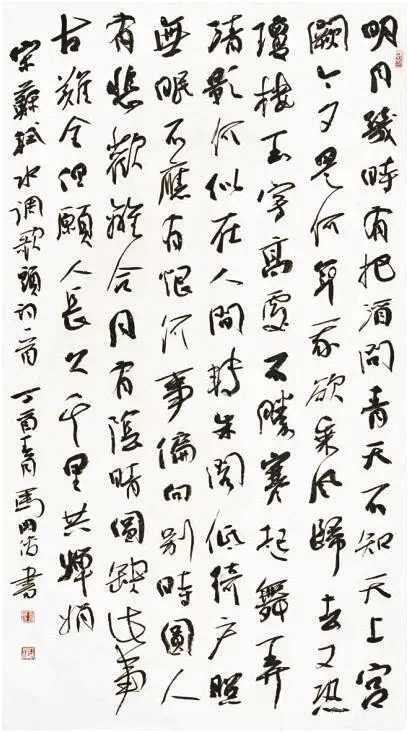 明月幾時有把酒問青天不知天上宮
闕今夕是何年我欲乘風歸去又恐
瓊樓玉宇高處不勝寒起舞弄
清影何似在人間轉朱閣低綺户照
無眠不應有恨何事偏向别時圓人
有悲歡離合月有陰晴圓缺此事
古難全但願人長久千里共嬋娟
宋蘇軾水調歌頭詞一首 丁酉 馬 書